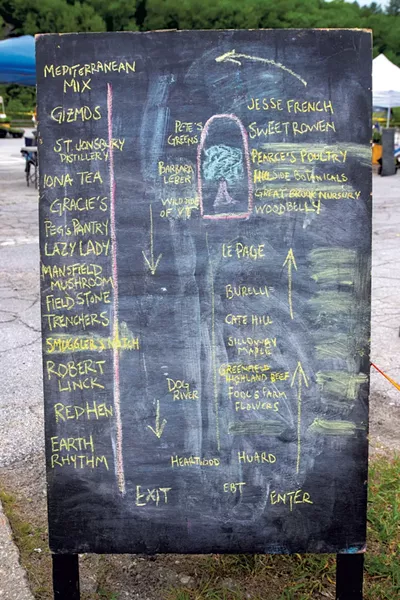 MEDITERRANEAN
MIX
GIZMOS
ST JONSBURY
DISTILLERY
IONA TEA
GRACIE'S
PEG'S PANTRY
LAZY LADY
MANSFIELD
MUSHROOM
FIELD STONE
TRENCHERS
SMUGGLER'S NOTCH
ROBERT
LINCK
RED HEN
EARTH
RHYTHM
EXIT
PETE'S
GREENS
BARBARA
LEBER
WILDSIDE
OF VT
DOG
RIVER
HEARTWOOD
JESSE FRENCH
SWEET ROWEN
PEARCE'S POULTRY
HILLSIDE BOTANICALS
GREAT BROOK NURSERY
WOODBELLY
LE PAGE
BURELLI
CATE HILL
SILLOWAY
MAPLE
GREENFIELD
HIGHLAND BEEF
FOOL'S FARM
FLOWERS
HUARD
EBT
ENTER